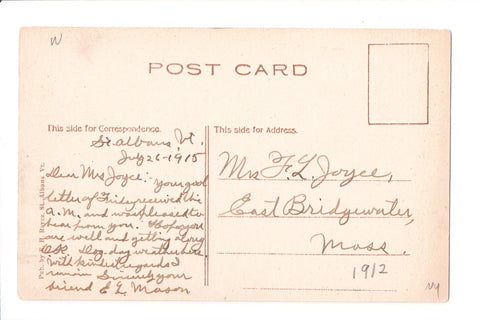 N
POST CARD
This side for Correspondence.
This side for Address.
St. Albans, Vt.
July 26-1915
Dear Mrs Joyce:- your good
letter of Friday received this
A.M. and was pleased to
hear from you. Hope you
are well and getting along
O.K. Dog day weather here.
With kindest regards I
remain Sincerely your
friend E L Mason
Mrs F. L. Joyce,
East Bridgewater,
Mass.
1912
VY
St. Albans, Vt.